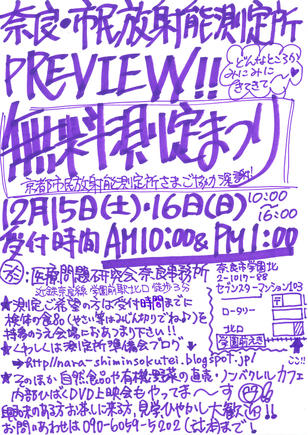 奈良・市民放射能測定所
PREVIEW!!
どんなところか
みにみに
きてきて
無料測定まつり
京都市民放射能測定所さまご協力
12月15日(土)・16日(日) 10:00
〜
16:00
受付時間 AM10:00 & PM1:00
会:医療問題研究会奈良事務所
近鉄奈良線 学園前駅北口 徒歩3分
奈良市学園北
2-1017-88
セブンスターマンション103
ロータリー
北口
学園前駅
ここ!!
★測定ご希望の方は受付時間までに
検体の食品(やさい等はみじん切りでねよ)を
持参のうえ会場におこしおり下さい!!
★くわしくは測定所準備会ブログ
→http://nara-shiminsokutei.blogspot.jp/
★そのほか自然食品や有機野菜の直売・ノンベクレルカフェ
内部ひばくDVD上映会もやってま〜す
興味のある方お楽しみな方、見学ひやかし大歓迎!!
お問いあわせは090-6059-5202(辻本)まで!